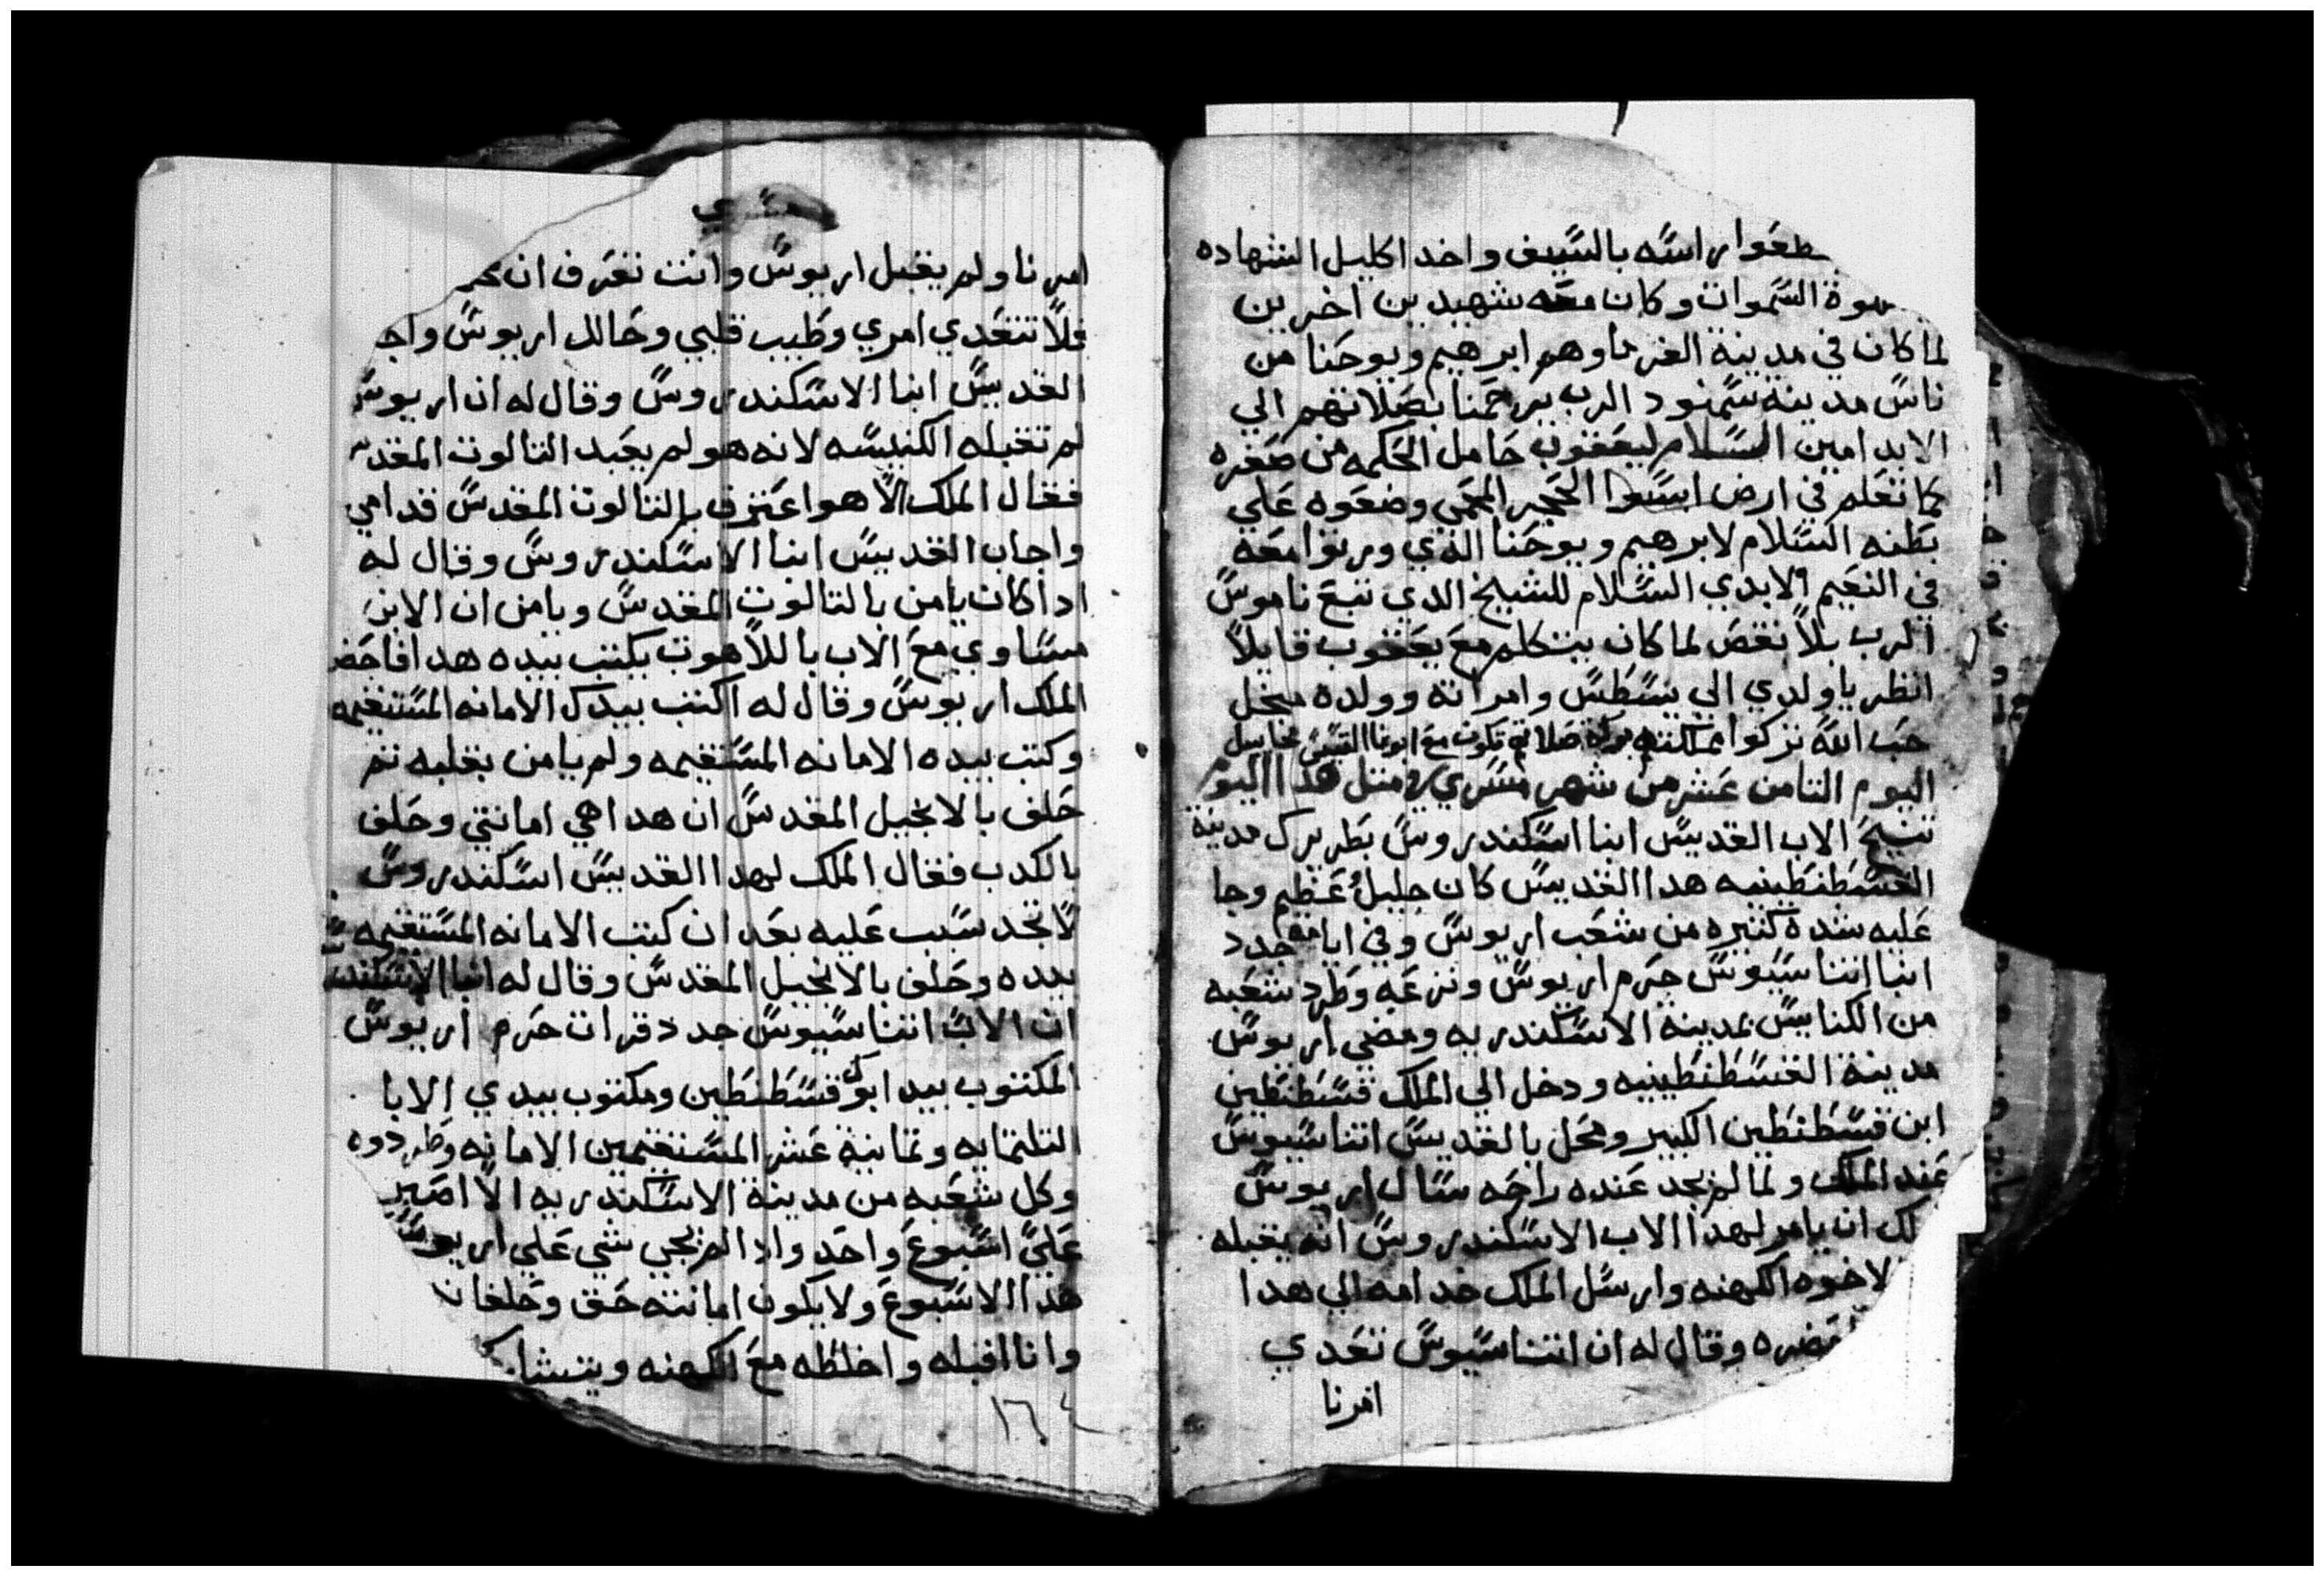 قطعوا راسه بالسيف واخد اكليل الشهاده
السموات وكان معه شهيدين اخرين
لما كان في مدينة الفرما وهم ابرهيم ويوحنا من
ناس مدينه سمنود الرب يرحمنا بصلاتهم الي
الابد امين السلام ليعقوب حامل الحكمه من صغره
كما تعلم في ارض الحجر المحمي وضعوه علي
بطنه السلام لابرهيم ويوحنا الذي ورثوا معه
في النعيم الابدي السلام للشيخ الدي تبع ناموس
الرب بلا نقص لما كان يتكلم مع يعقوب قايلا
انظر يا ولدي الي وامراته وولده
حب الله تركوا صلاته تكون مع ابونا القسيس مخاييل
اليوم التامن عشر من شهر مسري في متل هدا اليوم
تنيح الاب القديس انبا اسكندروس بطريرك مدينة
القسطنطينيه هدا القديس كان جليل عظيم وجا
عليه شدة كتيره من شعب اريوس وفي ايامه جدد
انبا اتناسيوس حرم اريوس ونزعه وطرد شعبه
من الكنايس بمدينة الاسكندريه ومضي اريوس
مدينة القسطنطينيه ودخل الي الملك قسطنطين
ابن قسطنطين الكبير ومحل بالقديس اتناسيوس
عند الملك ولما لم يجد عنده راحه سال اريوس
لك ان يامر لهدا الاب الاسكندروس انه يقبله
لاخوه الكهنه وارسل الملك خدامه الي هدا
وقال له ان اتناسيوس تعدي
امرنا
امرنا ولم يقبل اريوس وانت تعرف ان
فلا تتعدي امري وطيب قلبي وحالل اريوس واجا
القديس انبا الاسكندروس وقال له ان اريوس
لم تقبله الكنيسه لانه هو لم يعبد التالوت المقدس
فقال الملك الا هو اعترف بالتالوت المقدس قدامي
واجاب القديس انبا الاسكندروس وقال له
ادا كان يامن بالتالوت المقدس ويامن ان الابن
مساوي مع الاب باللاهوت يكتب بيده هدا فاحضر
الملك اريوس وقال له اكتب بيدك الامانه المستقيمه
وكتب بيده الامانه المستقيمه ولم يامن بقلبه تم
حلف بالانجيل المقدس ان هدا هي امانتي وحلف
بالكدب فقال الملك لهدا القديس اسكندروس
لا تجد سبب عليه بعد ان كتب الامانه المستقيمه
بيده وحلف بالانجيل المقدس وقال له انبا الاسكندر
ان الاب اتناسيوس جدد قرات حرم اريوس
المكتوب بيد ابوك قسطنطين ومكتوب بيدي الابا
التلتمايه وتمانية عشر المستقيمين الامانه وطردوه
وكل شعبه من مدينة الاسكندريه الا اصبر
علي اسبوع واحد وادا لم يجي شي علي اريوس
هدا الاسبوع ولا يكون امانته حق وحلفان
وانا اقبله واخلطه مع الكهنه
١٦٤